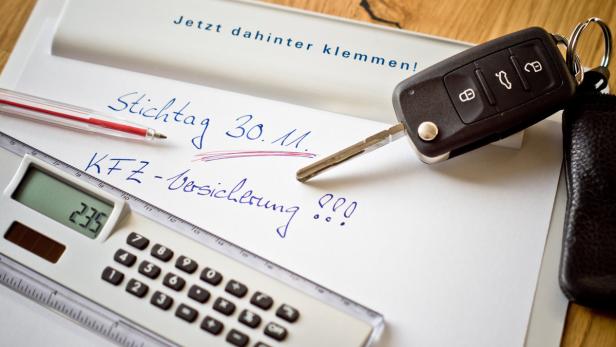 Jetzt dahinter klemmen!
Stichtag 30.11.
KFZ-Versicherung !!!
235
7 8 9 0
4 5 6
1 2 3